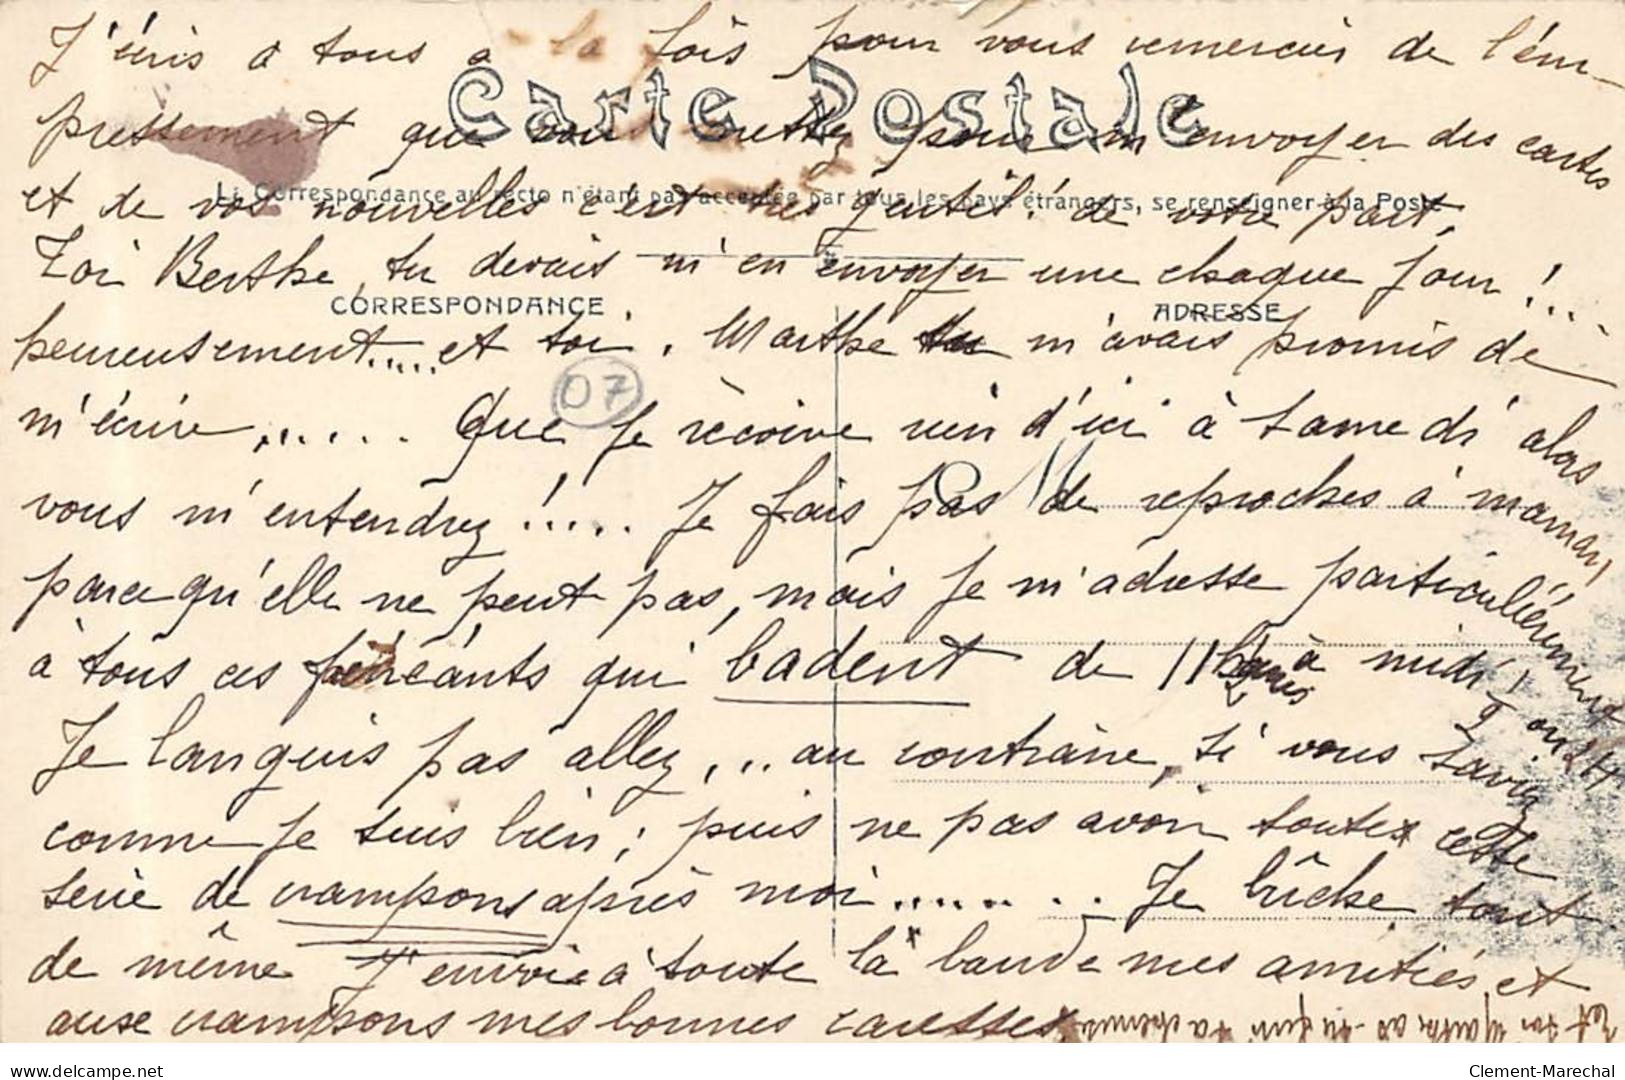 J'écris à tous à la fois pour vous remercier de l'em-
Carte Postale
pressement que vous mettez pour m'envoyer des cartes
La Correspondance au recto n'étant pas acceptée par tous les pays étrangers, se renseigner à la Poste
et de vos nouvelles c'est très gentil de votre part.
Toi Berthe, tu devais m'en envoyer une chaque jour !...
CORRESPONDANCE
ADRESSE
heureusement..... et toi, Marthe tu m'avais promis de
m'écrire,..... Que je reçoive rien d'ici à samedi alors
07
vous m'entendrez !..... Je fais pas de reproches à maman
parce qu'elle ne peut pas, mais je m'adresse particulièrement
à tous ces fainéants qui badent de 11 à midi
Je languis pas allez,... au contraire, si vous saviez
comme je suis bien; puis ne pas avoir toute cette
série de crampons après moi....... Je bûche tout
de même J'envoie à toute la bande mes amitiés et
aux crampons mes bonnes caresses.
Et toi Marthe as-tu fini ta
Clement-Marechal